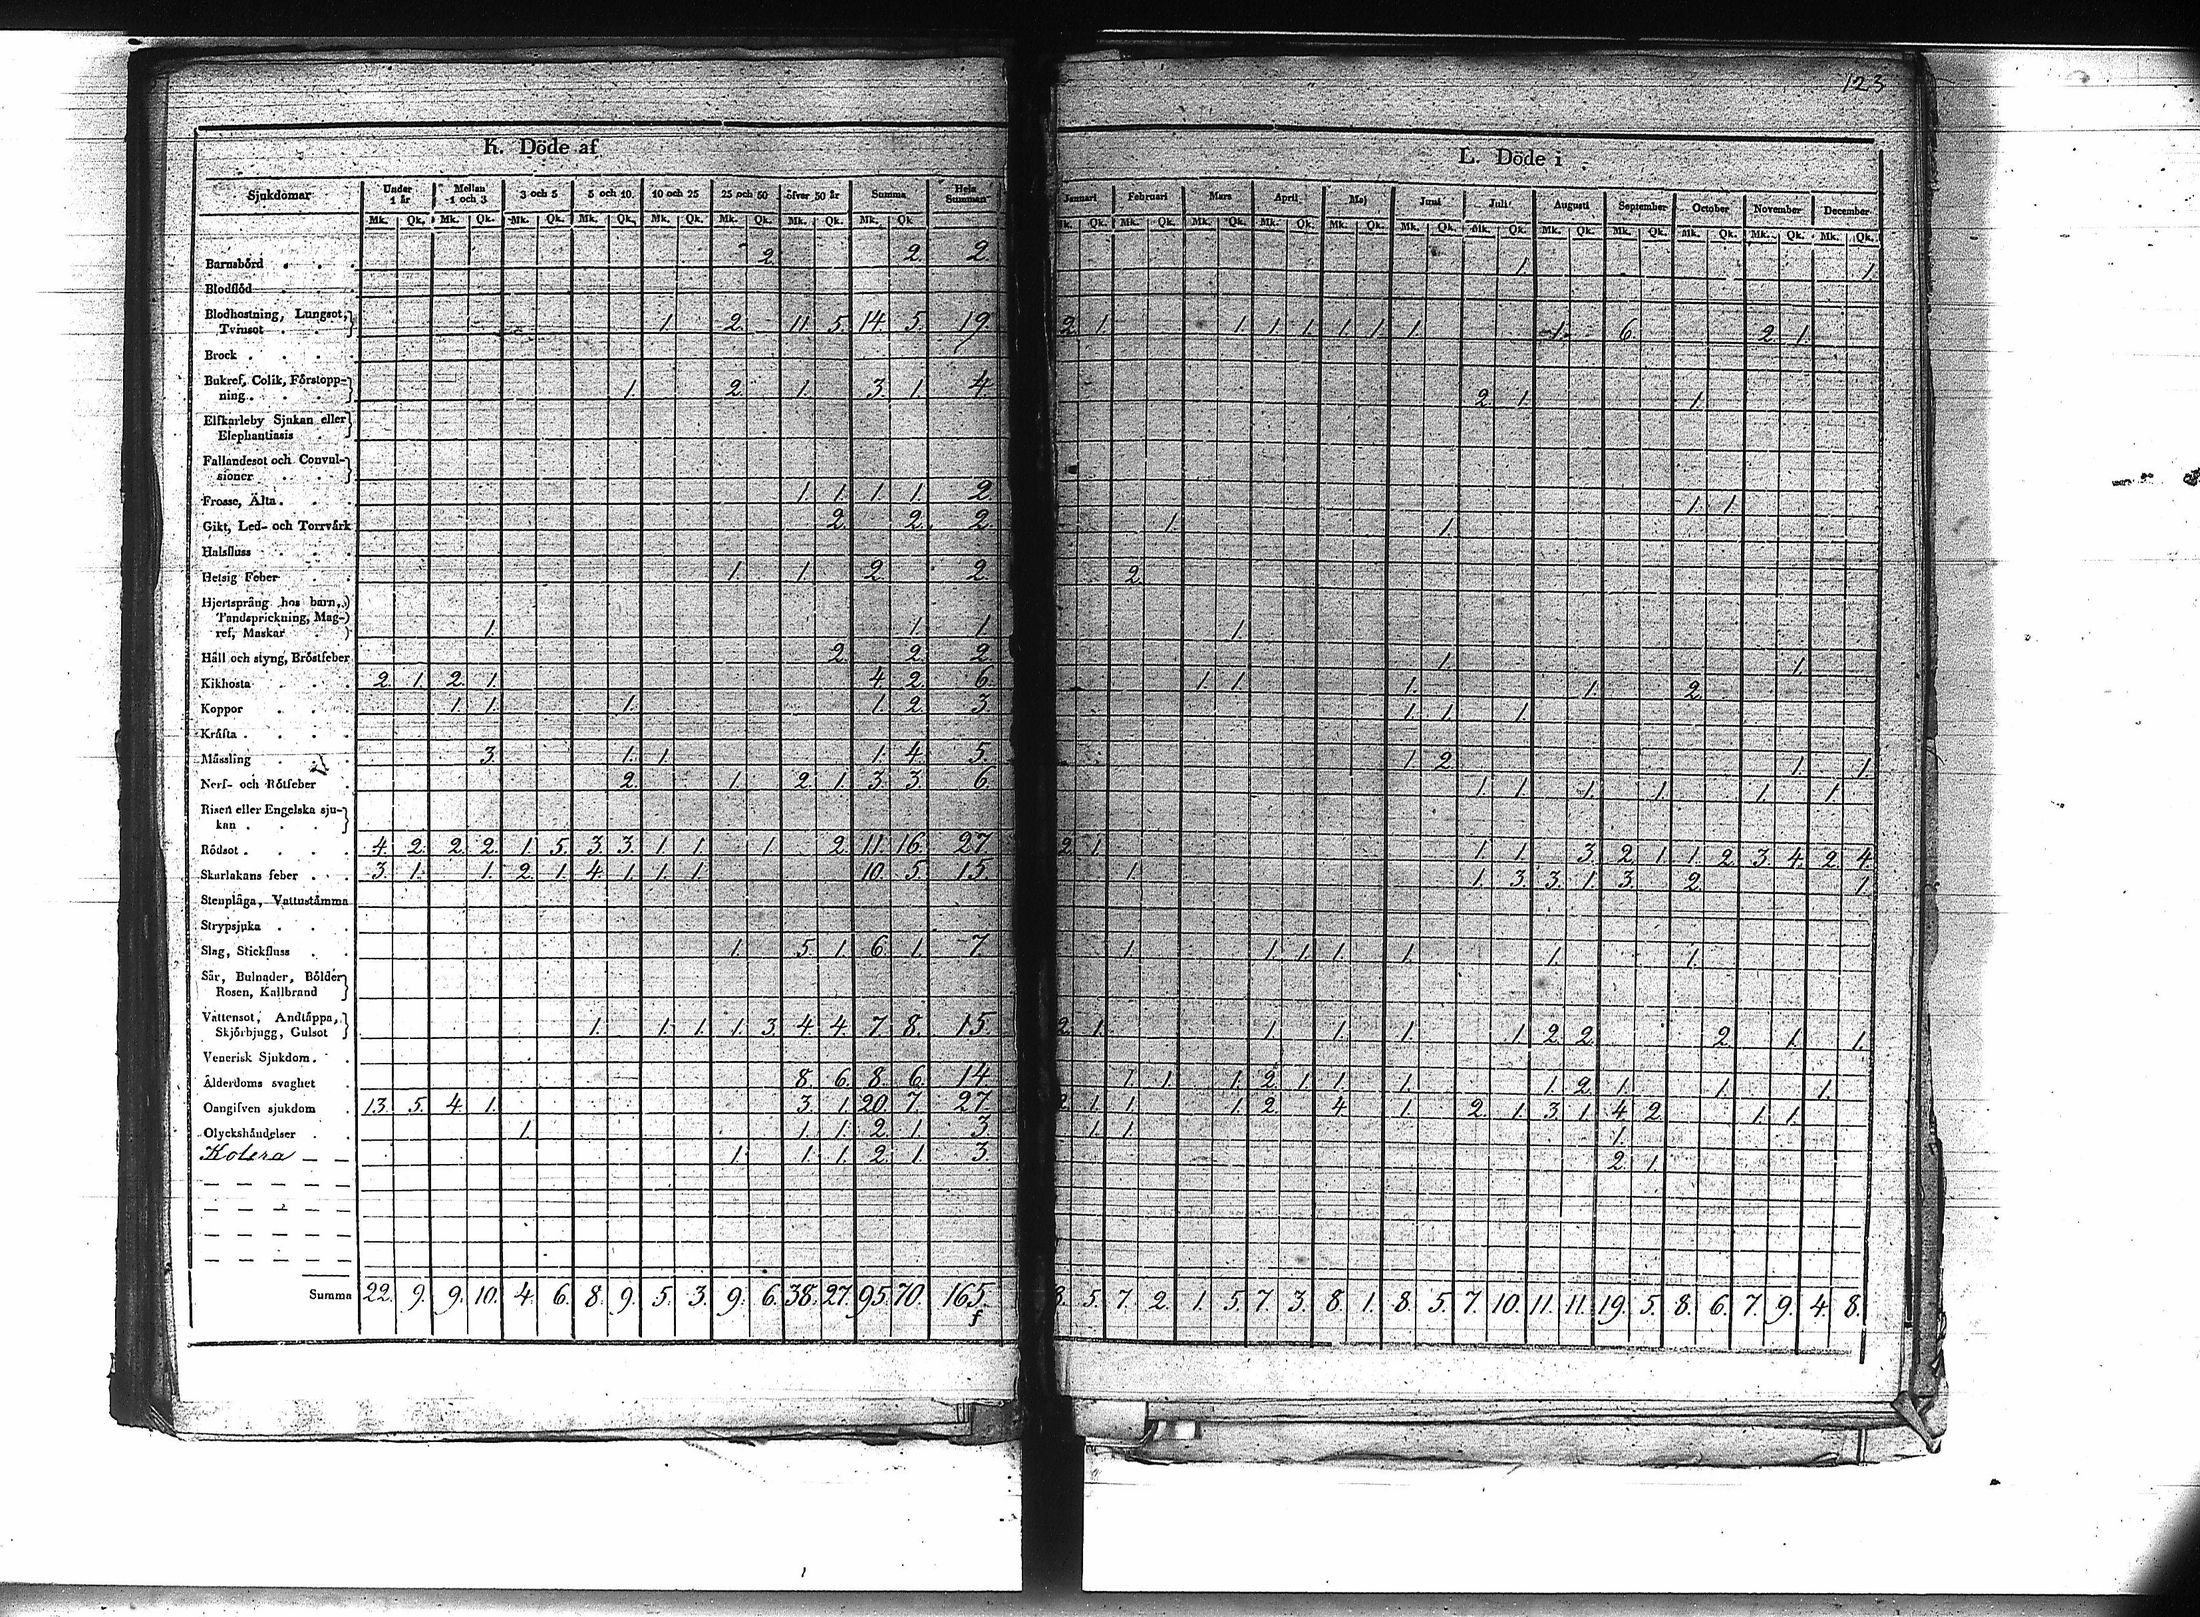 123
K. Döde af
Sjukdomar Under 1 år Mellan 1 och 3 3 och 5 5 och 10. 10 och 25 25 och 50 öfver 50 år Summa Hela Summan
Mk. Qk. Mk. Qk. Mk. Qk. Mk. Qk. Mk. Qk. Mk. Qk. Mk. Qk. Mk. Qk.
Barnsbörd . . . 2. 2. 2
Blodflöd . . .
Blodhostning, Lungsot,
Tvinsot . . . 1. 2. 11. 5. 14. 5. 19.
Brock . . . .
Bukref, Colik, Förstopp-
ning . . . 1. 2. 1. 3. 1. 4.
Elfkarleby Sjukan eller
Elephantiasis .
Fallandesot och Convul-
sioner . . .
Frosse, Älta . . . 1. 1. 1. 1. 2
Gikt, Led- och Torrvärk 2. 2. 2.
Halsfluss . . .
Hetsig Feber . . 1. 1. 2. 2.
Hjertsprång hos barn,
Tandsprickning, Mag-
ref, Maskar . 1. 1. 1
Håll och styng, Bröstfeber 2. 2. 2.
Kikhosta . . . 2. 1. 2. 1. 4. 2. 6.
Koppor . . . 1. 1. 1. 1. 2. 3.
Kräfta . . . .
Mässling . . . 3. 1. 1. 1. 4. 5.
Nerf- och Rötfeber . 2. 1. 2. 1. 3. 3. 6
Risen eller Engelska sju-
kan . . . .
Rödsot . . . . 4. 2. 2. 2. 1. 5. 3. 3. 1. 1. 1. 2. 11. 16. 27
Skarlakans feber . . 3. 1. 1. 2. 1. 4. 1. 1. 1. 10. 5. 15
Stenplåga, Vattustämma
Strypsjuka . . .
Slag, Stickfluss . . 1. 5. 1. 6. 1. 7.
Sår, Bulnader, Bölder
Rosen, Kallbrand
Vattensot, Andtäppa,
Skjörbjugg, Gulsot 1. 1. 1. 1. 3. 4. 4. 7. 8. 15
Venerisk Sjukdom . .
Ålderdoms svaghet . 8. 6. 8. 6. 14
Oangifven sjukdom . 13. 5. 4. 1. 3. 1. 20. 7. 27
Olyckshändelser . . 1. 1. 1. 2. 1. 3
Kolera 1. 1. 1. 2. 1. 3
Summa 22. 9. 9. 10. 4. 6. 8. 9. 5. 3. 9. 6. 38. 27. 95. 70. 165.
L. Döde i
Januari Februari Mars April Maj Juni Juli Augusti September October November December
Mk. Qk. Mk. Qk. Mk. Qk. Mk. Qk. Mk. Qk. Mk. Qk. Mk. Qk. Mk. Qk. Mk. Qk. Mk. Qk. Mk. Qk. Mk. Qk.
1. 1.
2. 1. 1. 1. 1. 1. 1. 1. 1. 6. 2. 1.
2. 1. 1.
1. 1.
1. 1.
2.
1.
1. 1.
1. 1. 1. 1. 2.
1. 1. 1.
1. 2. 1. 1.
1. 1. 1. 1. 1. 1.
2. 1. 1. 1. 3. 2. 1. 1. 2. 3. 4. 2. 4.
1. 1. 3. 3. 1. 3. 2. 1.
1. 1. 1. 1. 1. 1. 1.
2. 1. 1. 1. 1. 1. 2. 2. 2. 1. 1.
1. 1. 1. 2. 1. 1. 1. 1. 2. 1. 1. 1.
2. 1. 1. 1. 2. 4. 1. 2. 1. 3. 1. 4. 2. 1. 1.
1. 1. 1.
2. 1.
8. 5. 7. 2. 1. 5. 7. 3. 8. 1. 8. 5. 7. 10. 11. 11. 19. 5. 8. 6. 7. 9. 4. 8.